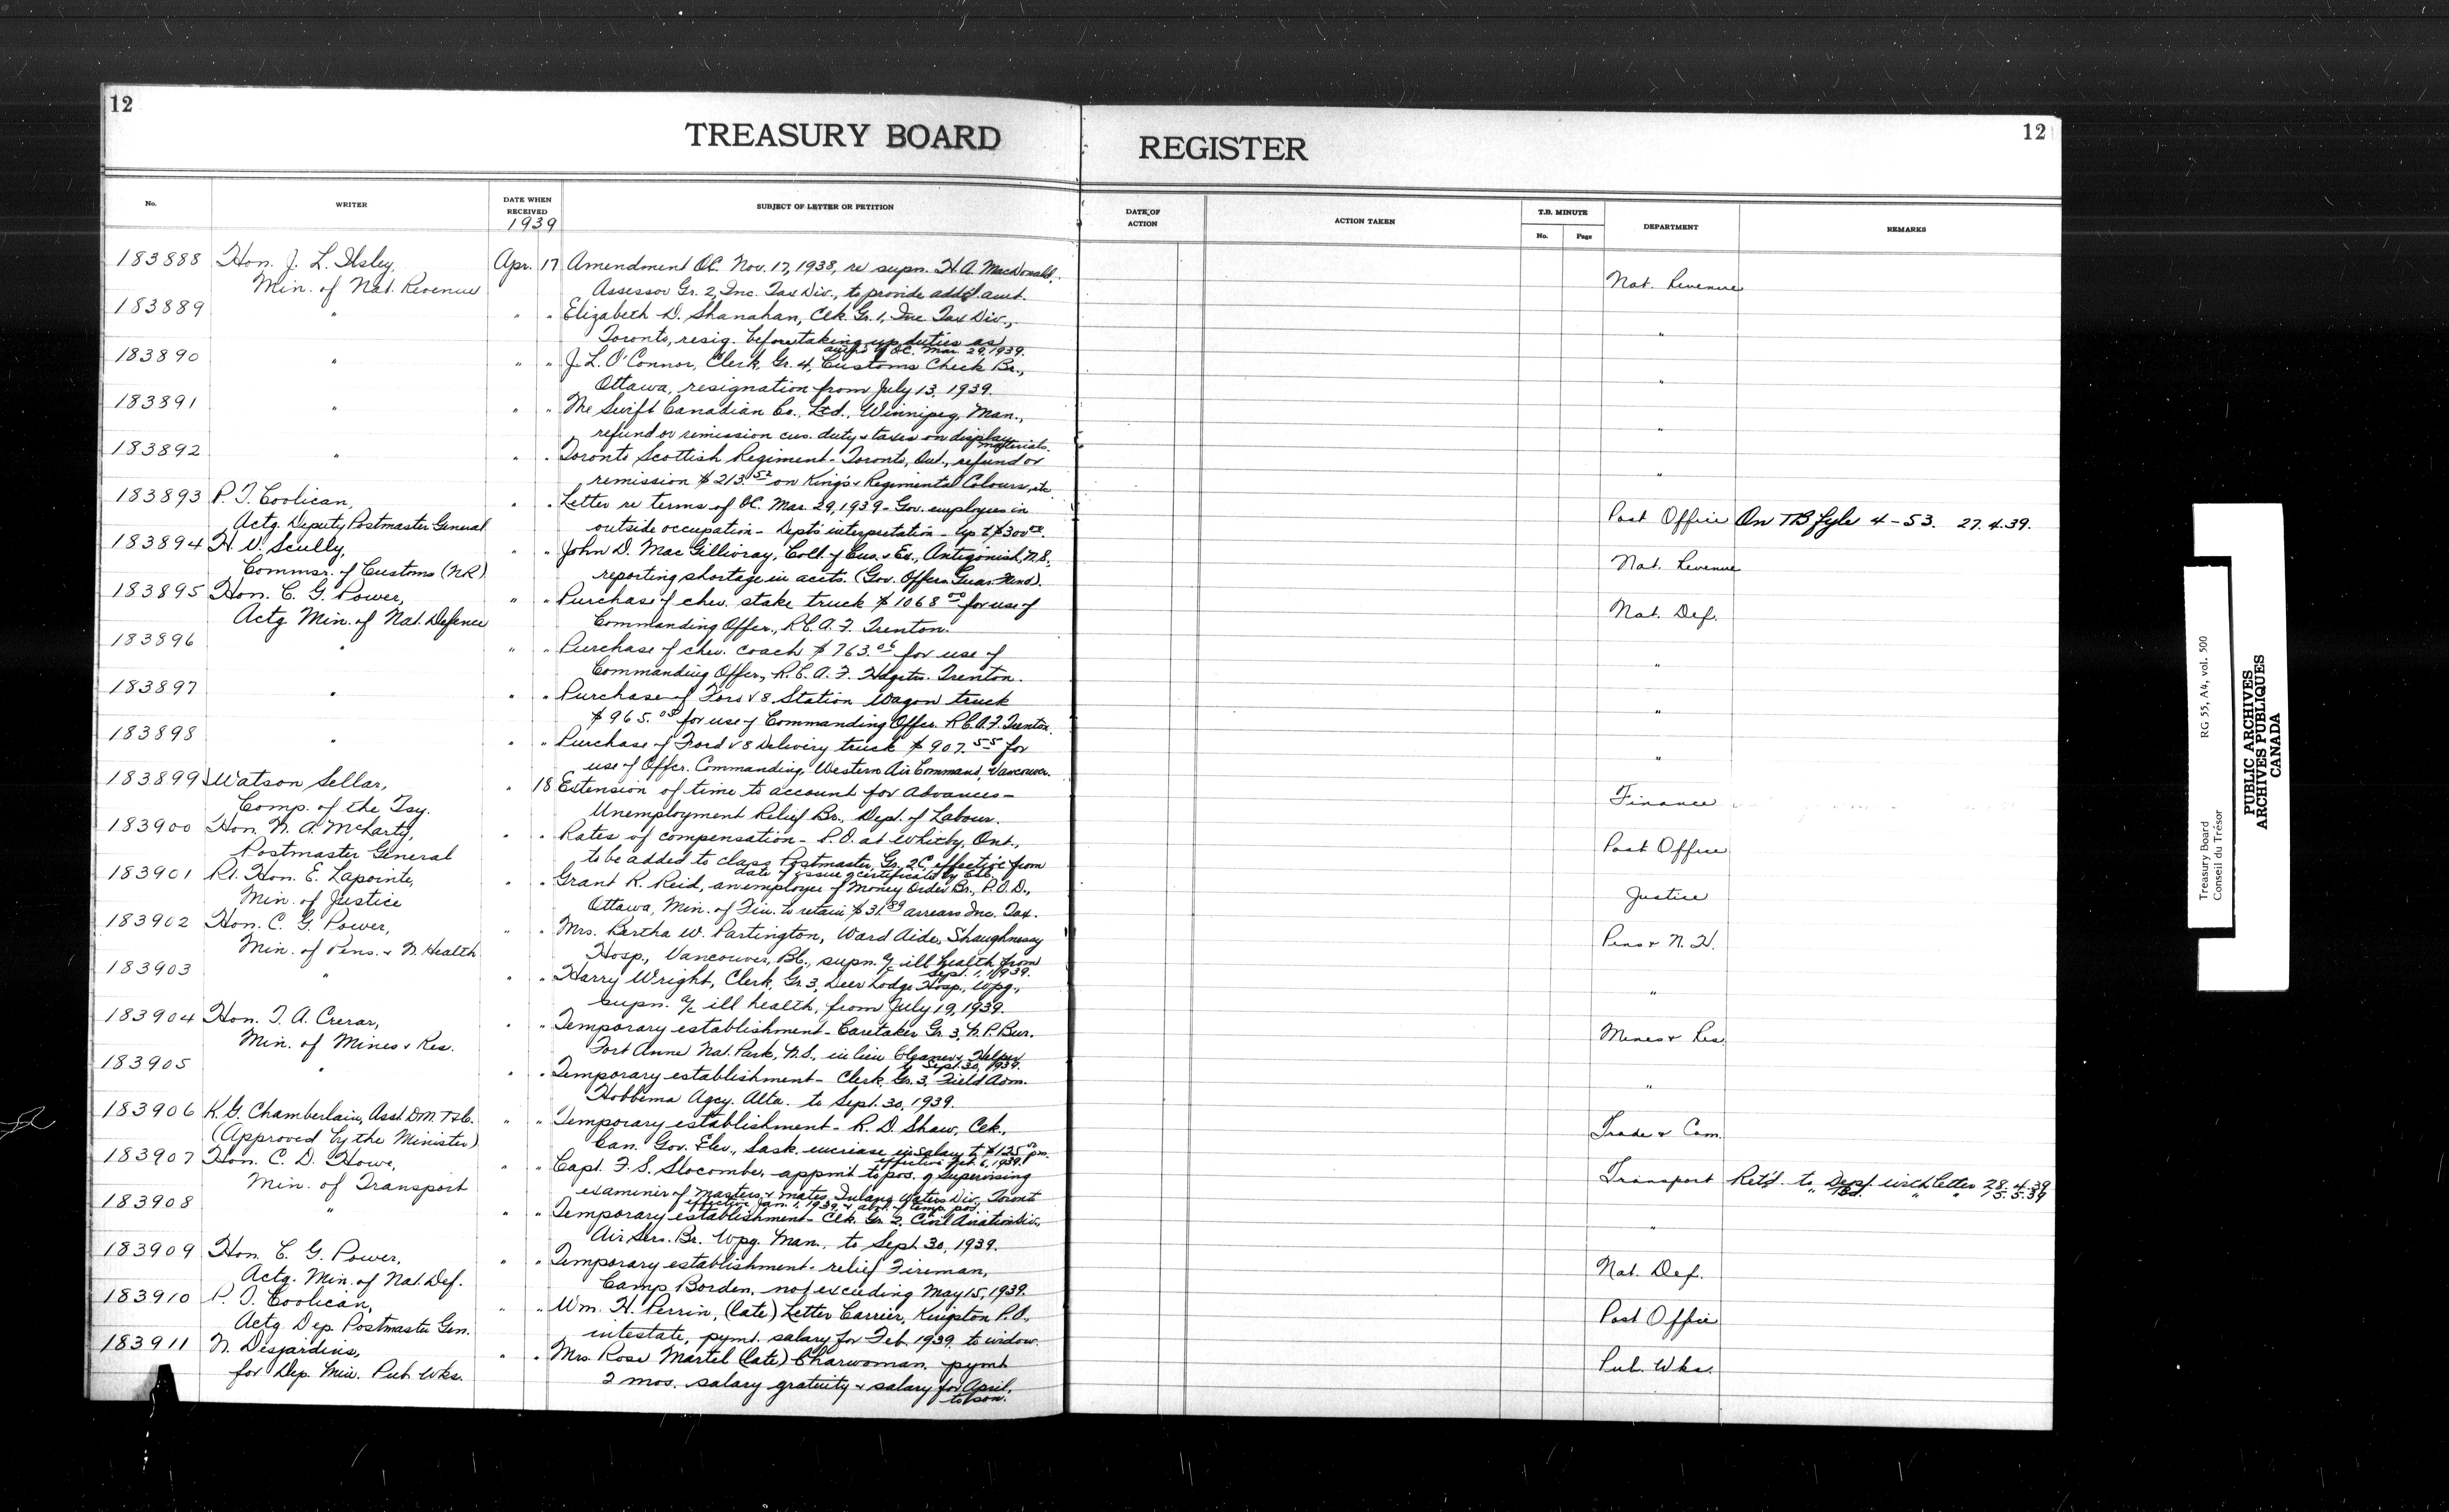 12
12
TREASURY BOARD
REGISTER
No.
WRITER
DATE WHEN RECEIVED
1939
SUBJECT OF LETTER OR PETITION
DATE OF ACTION
ACTION TAKEN
T.B. MINUTE
No.
Page
DEPARTMENT
REMARKS
183888 Hon. J. L. Ilsley, Apr. 17 Amendment OC. Nov. 17, 1938, re supn. H. A. MacDonald,
Min. of Nat. Revenue Assessor Gr. 2, Inc. Tax Div., to provide add'l amt. Nat. Revenue
183889 " " " Elizabeth D. Shanahan, Clk. Gr. 1, Inc. Tax Div.,
Toronto, resig. before taking up duties as "
auth'd by OC. Mar. 29, 1939.
183890 " " " J. L. O'Connor, Clerk, Gr. 4, Customs Check Br.,
Ottawa, resignation from July 13, 1939. "
183891 " " " The Swift Canadian Co., Ltd., Winnipeg, Man.,
refund or remission cus. duty & taxes on display "
materials.
183892 " " " Toronto Scottish Regiment - Toronto, Ont., refund or
remission $213.52 on King's & Regimental Colours, etc. "
183893 P. T. Coolican, " " Letter re terms of OC. Mar. 29, 1939 - Gov. employees in
Actg. Deputy Postmaster General outside occupation - Dept's interpretation - Up to $300.00. Post Office On TB fyle 4-53. 27.4.39.
183894 H. D. Scully, " " John D. MacGillivray, Coll. of Cus. & Ex., Antigonish, N.S.,
Commsr. of Customs (NR) reporting shortage in accts. (Gov. Offers Guar. Fund). Nat. Revenue
183895 Hon. C. G. Power, " " Purchase of chev. stake truck $1068.00 for use of
Actg. Min. of Nat. Defence Commanding Offcr., R.C.A.F. Trenton. Nat. Def.
183896 " " " Purchase of chev. coach $763.06 for use of
Commanding Offcr., R.C.A.F. Hdqtrs. Trenton. "
183897 " " " Purchase of Ford V8 Station Wagon truck
$965.05 for use of Commanding Offcr. R.C.A.F. Trenton. "
183898 " " " Purchase of Ford V8 Delivery truck $907.55 for
use of Offcr. Commanding, Western Air Command, Vancouver. "
183899 Watson Sellar, " 18 Extension of time to account for advances -
Comp. of the Tsy. Unemployment Relief Br., Dept. of Labour. Finance
183900 Hon. N. A. McLarty, " " Rates of compensation - P.O. at Whitby, Ont.,
Postmaster General to be added to class Postmaster, Gr. 2C, effective from Post Office
date of issue of certificate by CSC.
183901 Rt. Hon. E. Lapointe, " " Grant R. Reid, an employee of Money Order Br., P.O.D.,
Min. of Justice Ottawa, Min. of Fin. to retain $31.89 arrears Inc. Tax. Justice
183902 Hon. C. G. Power, " " Mrs. Bertha W. Partington, Ward Aide, Shaughnessy
Min. of Pens. & N. Health Hosp., Vancouver, B.C., supn. a/c ill health from Pens & N. H.
Sept. 1, 1939.
183903 " " " Harry Wright, Clerk, Gr. 3, Deer Lodge Hosp., Wpg.,
supn. a/c ill health, from July 19, 1939. "
183904 Hon. T. A. Crerar, " " Temporary establishment - Caretaker Gr. 3, N. P. Bur.
Min. of Mines & Res. Fort Anne Nat. Park, N.S., in lieu Cleaner & Helper Mines & Res.
to Sept. 30, 1939.
183905 " " " Temporary establishment - Clerk, Gr. 3, Field Adm.
Hobbema Agcy. Alta. to Sept. 30, 1939. "
183906 K. G. Chamberlain, Asst. D.M. T&C. " " Temporary establishment - R. D. Shaw, Clk.
(Approved by the Minister) Can. Gov. Elev., Sask. increase in salary to $125.00 pm. Trade & Com.
effective Feb. 6, 1939.
183907 Hon. C. D. Howe, " " Capt. F. S. Slocombe, appmt to pos. of Supervising
Min. of Transport examiner of Masters & mates, Inland Waters Div., Toront Transport Ret'd. to Dept. with letter 28.4.39
effective Jan. 1, 1939, & abol. of temp. pos. " Bd. " " 15.5.39
183908 " " " Temporary establishment - Clk. Gr. 2, Civil Aviation Div.,
Air Serv. Br. Wpg. Man., to Sept. 30, 1939. "
183909 Hon. C. G. Power, " " Temporary establishment - relief Fireman,
Actg. Min. of Nat. Def. Camp Borden, not exceeding May 15, 1939. Nat. Def.
183910 P. T. Coolican, " " Wm. H. Perrin, (late) Letter Carrier, Kingston P.O.,
Actg. Dep. Postmaster Gen. intestate, pymt. salary for Feb. 1939, to widow. Post Office
183911 N. Desjardins, " " Mrs. Rose Martel (late) Charwoman, pymt
for Dep. Min. Pub. Wks. 2 mos. salary gratuity & salary for April, Pub. Wks.
to son.
Treasury Board
Conseil du Trésor
RG 55, A4, vol. 500
PUBLIC ARCHIVES
ARCHIVES PUBLIQUES
CANADA